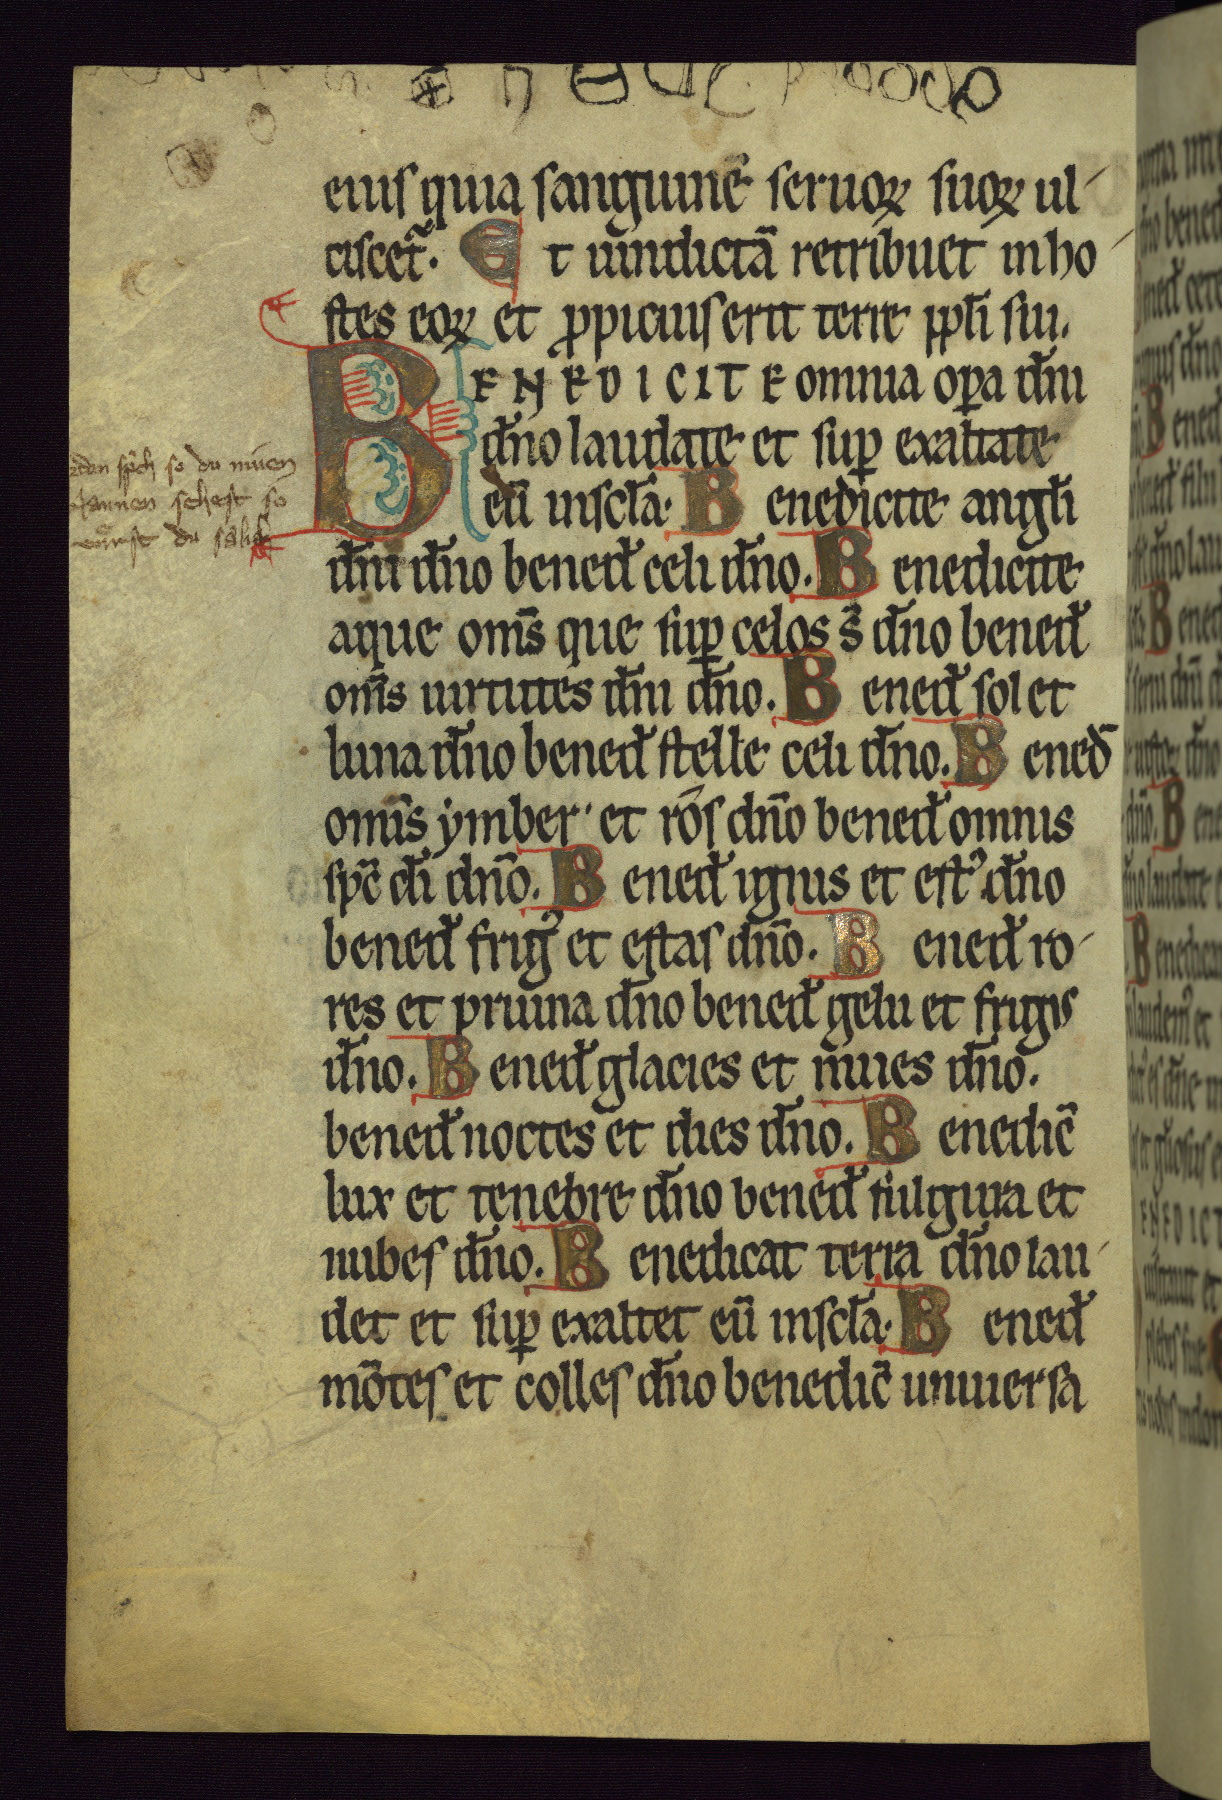 eiusquia sanguinē seruoꝝ suoꝝ ul-
ciscet̃. Et uindictā retribuet inho-
stes eoꝝ et ꝓpiciuserit terre ppl̄i sui.
BENEDICITE omnia oꝑa dn̄i
dn̄o laudate et suꝑ exaltate
eū inscl̄a. Benedicite angl̄i
dn̄i dn̄o bened̄ celi dn̄o. Benedicite
aque om̄s que suꝑ celos s̄ dn̄o bened̄
om̄s uirtutes dn̄i dn̄o. Bened̄ sol et
luna dn̄o bened̄ stelle celi dn̄o. Bened̄
omīs ymber et ros dn̄o bened̄ omnis
spc̄ di dn̄o. Bened̄ ignis et est⁹ dn̄o
bened̄ frig⁹ et estas dn̄o. Bened̄ ro-
res et pruina dn̄o bened̄ gelu et frigus
dn̄o. Bened̄ glacies et niues dn̄o.
bened̄ noctes et dies dn̄o. Benedic̄
lux et tenebre dn̄o bened̄ fulgura et
nubes dn̄o. Benedicat terra dn̄o lau-
det et suꝑ exaltet eū inscl̄a. Bened̄
mōtes et colles dn̄o benedic̄ uniuersa
den sp̄ch so du
sehest so
du salik